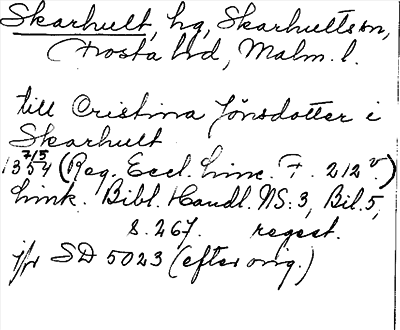 Skarhult, hg, Skarhults sn,
Frosta hd, Malm. l.
till Cristina Jönsdotter i
Skarhult
7/5
1354 (Reg. Eccl. Linc. F. 212 v.)
Link. Bibl. Handl. NS: 3, Bil. 5,
s. 267. regest.
jfr SD 5023 (efter orig.)